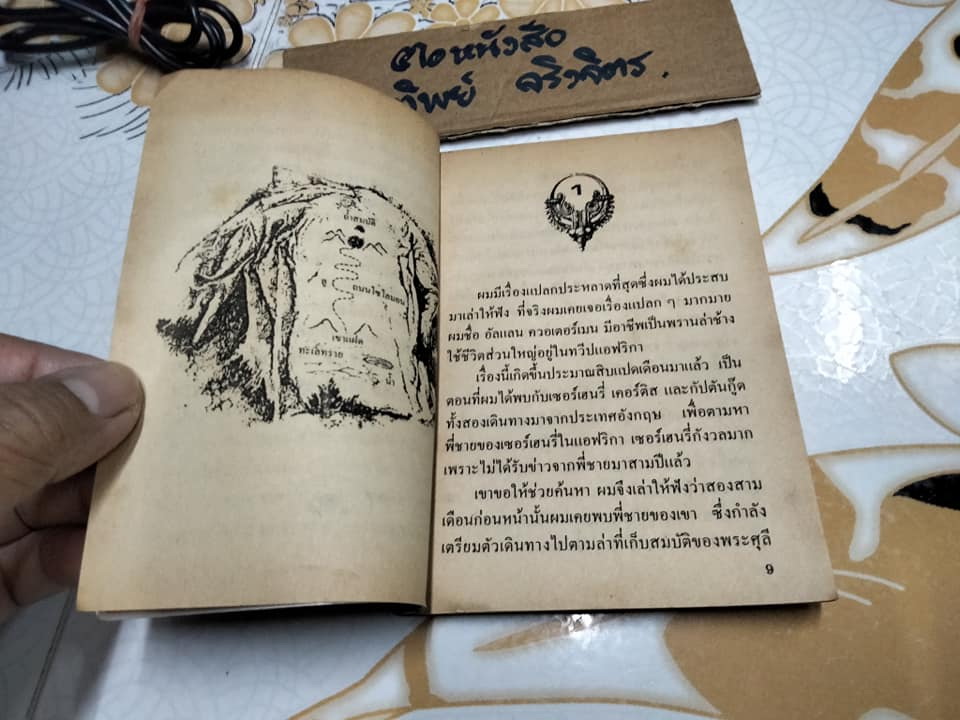 ตอหนังสือ
ทิพย์ จริงจิตร.
ถ้ำสมบัติ
ถนนโซโลมอน
เขาแฝด
ทะเลทราย
น้ำ
๑
ผมมีเรื่องแปลกประหลาดที่สุดซึ่งผมได้ประสบ
มาเล่าให้ฟัง ที่จริงผมเคยเจอเรื่องแปลก ๆ มากมาย
ผมชื่อ อัลแลน ควอเตอร์เมน มีอาชีพเป็นพรานล่าช้าง
ใช้ชีวิตส่วนใหญ่อยู่ในทวีปแอฟริกา
เรื่องนี้เกิดขึ้นประมาณสิบแปดเดือนมาแล้ว เป็น
ตอนที่ผมได้พบกับเซอร์เฮนรี่ เคอร์ติส และกัปตันกู๊ด
ทั้งสองเดินทางมาจากประเทศอังกฤษ เพื่อตามหา
พี่ชายของเซอร์เฮนรี่ในแอฟริกา เซอร์เฮนรี่กังวลมาก
เพราะไม่ได้รับข่าวจากพี่ชายมาสามปีแล้ว
เขาขอให้ช่วยค้นหา ผมจึงเล่าให้ฟังว่าสองสาม
เดือนก่อนหน้านั้นผมเคยพบพี่ชายของเขา ซึ่งกำลัง
เตรียมตัวเดินทางไปตามล่าที่เก็บสมบัติของพระศุลี
9